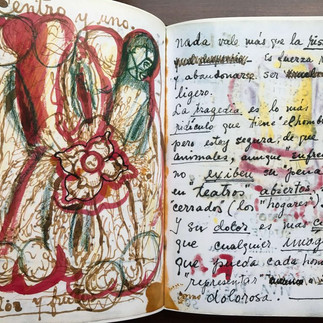 Centro y uno.
nada vale más que la risa
es fuerza
y abandonarse. ser
ligero.
La tragedia es lo más
ridículo que tiene "el hombre"
pero estoy segura, de que
animales, aunque "sufren"
no exiben su pena
en "teatros" abiertos
cerrados (los "hogares").
Y su dolor es más
que cualquier
que pueda cada
"representar"
dolorosa.